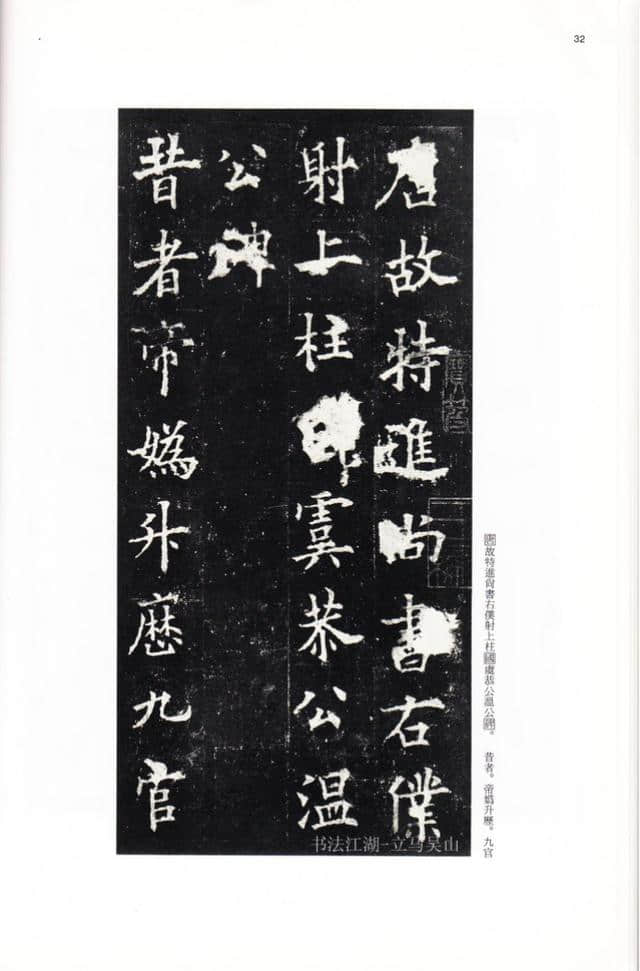 32
唐故特進尚書右僕
射上柱國虞恭公温
公碑
昔者帝媯升歷九官
唐故特進尚書右僕射上柱國虞恭公温公碑。 昔者。帝媯升歷。九官
书法江湖-立马吴山